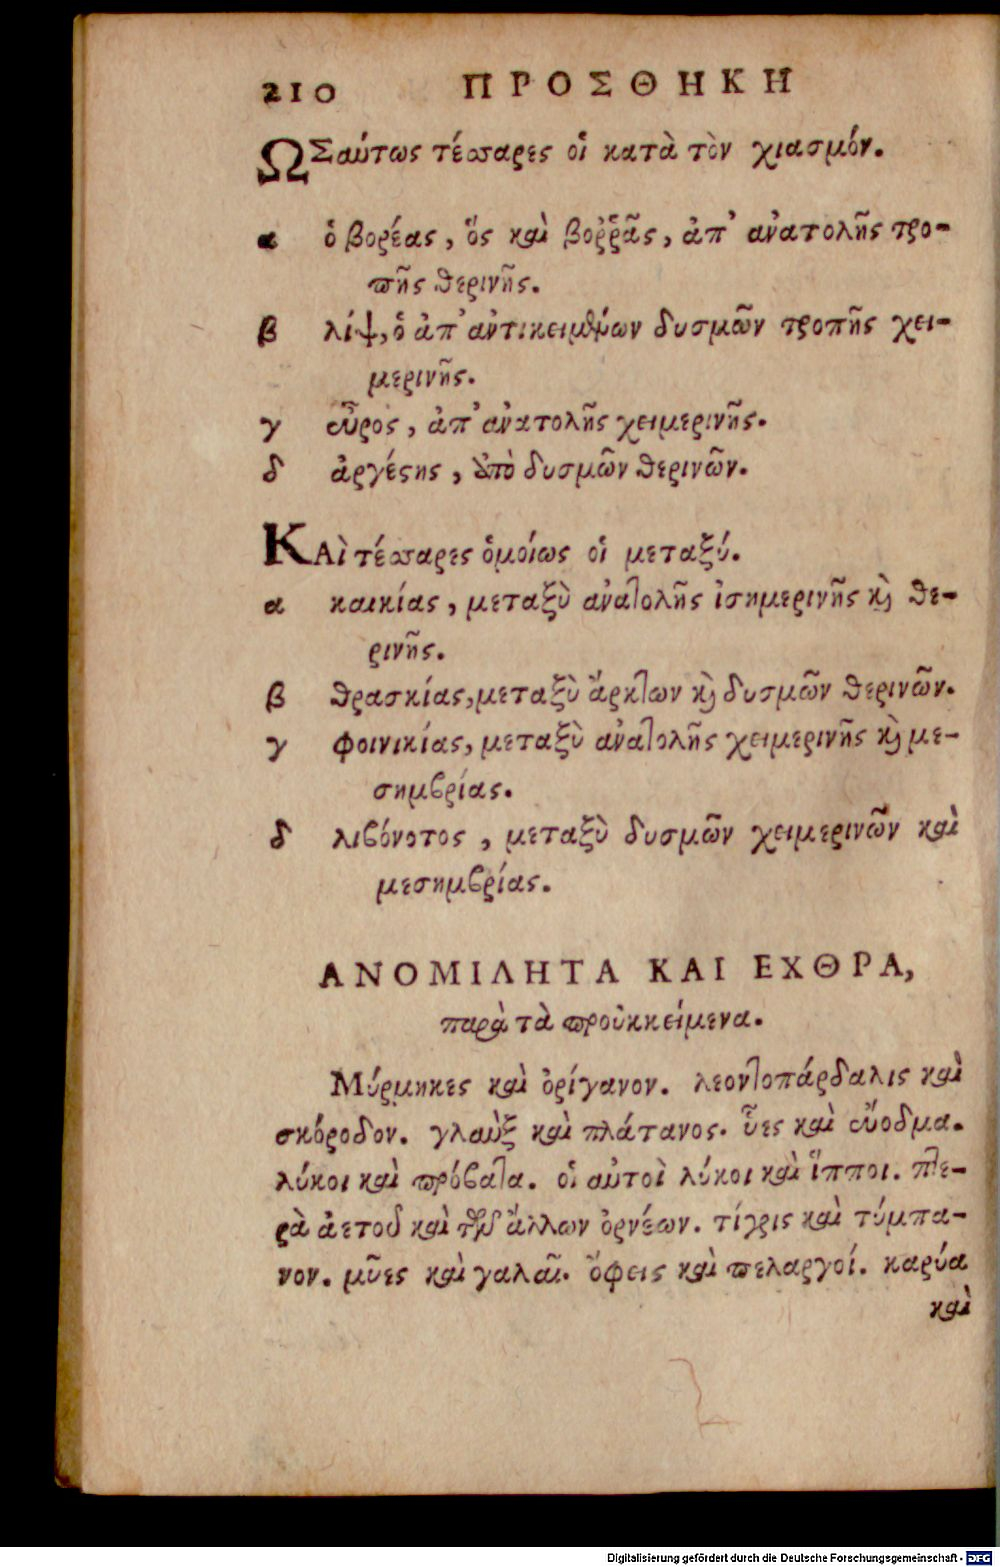 210 ΠΡΟΣΘΗΚΗ
ΩΣαύτως τέσσαρες οἱ κατὰ τὸν χιασμόν.
α ὁ βορέας, ὅς καὶ βοῤῥᾶς, ἀπ' ἀνατολῆς τρο-
πῆς θερινῆς.
β λίψ, ὁ ἀπ' ἀντικειμένων δυσμῶν τροπῆς χει-
μερινῆς.
γ εὖρος, ἀπ' ἀνατολῆς χειμερινῆς.
δ ἀργέστης, ἀπὸ δυσμῶν θερινῶν.
ΚΑὶ τέσσαρες ὁμοίως οἱ μεταξύ.
α καικίας, μεταξὺ ἀνατολῆς ἰσημερινῆς καὶ θε-
ρινῆς.
β θρασκίας, μεταξὺ ἄρκτων καὶ δυσμῶν θερινῶν.
γ φοινικίας, μεταξὺ ἀνατολῆς χειμερινῆς καὶ με-
σημβρίας.
δ λιβόνοτος, μεταξὺ δυσμῶν χειμερινῶν καὶ
μεσημβρίας.
ΑΝΟΜΙΛΗΤΑ ΚΑΙ ΕΧΘΡΑ,
παρὰ τὰ προὐκκείμενα.
Μύρμηκες καὶ ὀρίγανον. λεοντοπάρδαλις καὶ
σκόροδον. γλαὺξ καὶ πλάτανος. ὗες καὶ εὔοδμα.
λύκοι καὶ πρόβατα. οἱ αὐτοὶ λύκοι καὶ ἵπποι. πτε-
ρὰ ἀετοῦ καὶ τῶν ἄλλων ὀρνέων. τίγρις καὶ τύμπα-
νον. μῦες καὶ γαλαῖ. ὄφεις καὶ πελαργοί. καρύα
καὶ
Digitalisierung gefördert durch die Deutsche Forschungsgemeinschaft - DFG